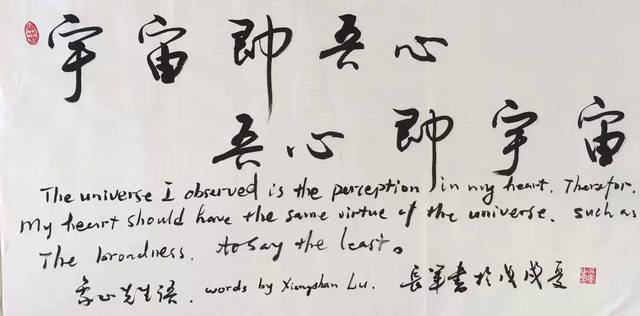 宇宙即吾心
吾心即宇宙
The universe I observed is the perception in my heart. Therefor.
My heart should have the same virtue of the universe. such as
The broadness. to say the least。
象山先生语. words by Xiangshan Lu. 長军书於戊戌夏